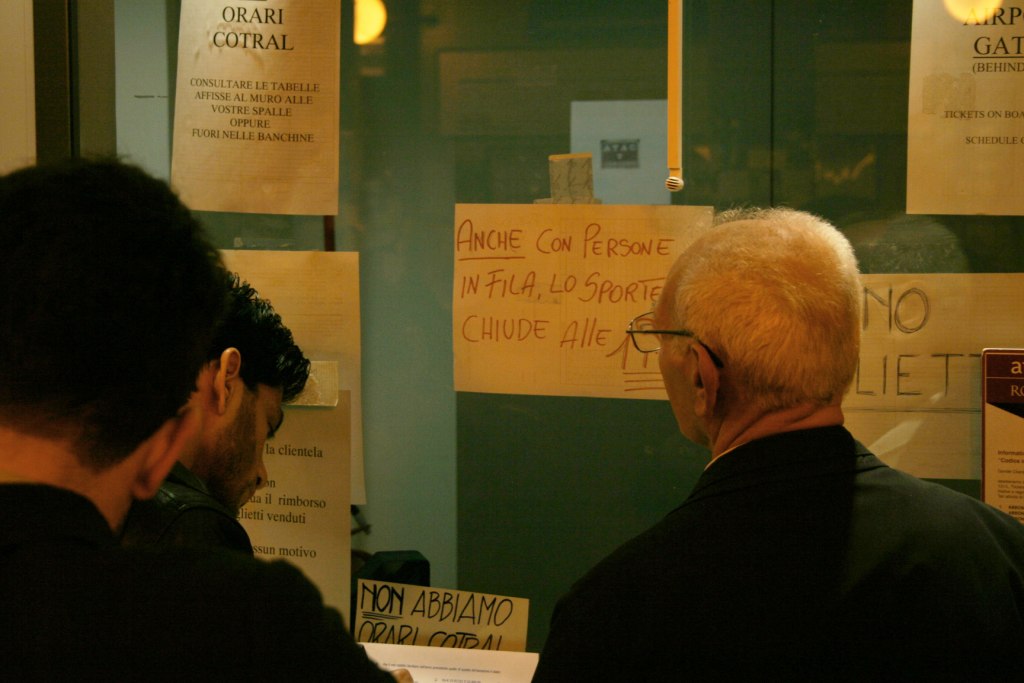 ORARI
COTRAL
CONSULTARE LE TABELLE
AFFISSE AL MURO ALLE
VOSTRE SPALLE
OPPURE
FUORI NELLE BANCHINE
ATAC
AIRP
GAT
(BEHIND
TICKETS ON BOA
SCHEDULE
ANCHE CON PERSONE
IN FILA, LO SPORTE
CHIUDE ALLE
NO
LIETT
la clientela
on
il rimborso
glietti venduti
ssun motivo
NON ABBIAMO
ORARI COTRAL